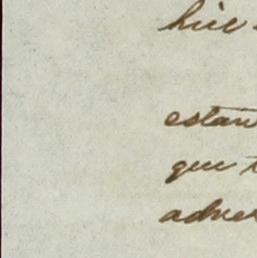 hice
estan
que t
adver